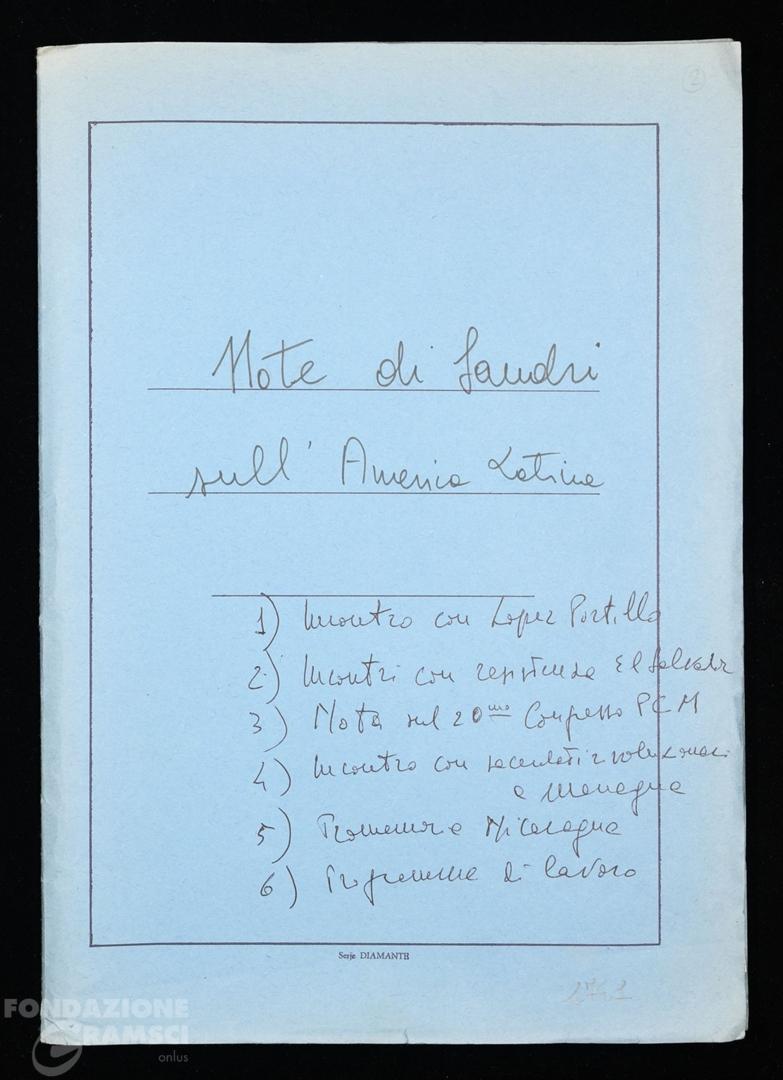 2
Note di Sandri
sull'America Latina
1) Incontro con Lopez Portillo
2) Incontri con resistenza El Salvador
3) Nota sul 20mo Congresso PCM
4) Incontro con sacerdoti rivoluzionari
a Managua
5) Promemoria Nicaragua
6) Programma di lavoro
Serie DIAMANTE
FONDAZIONE
GRAMSCI
onlus